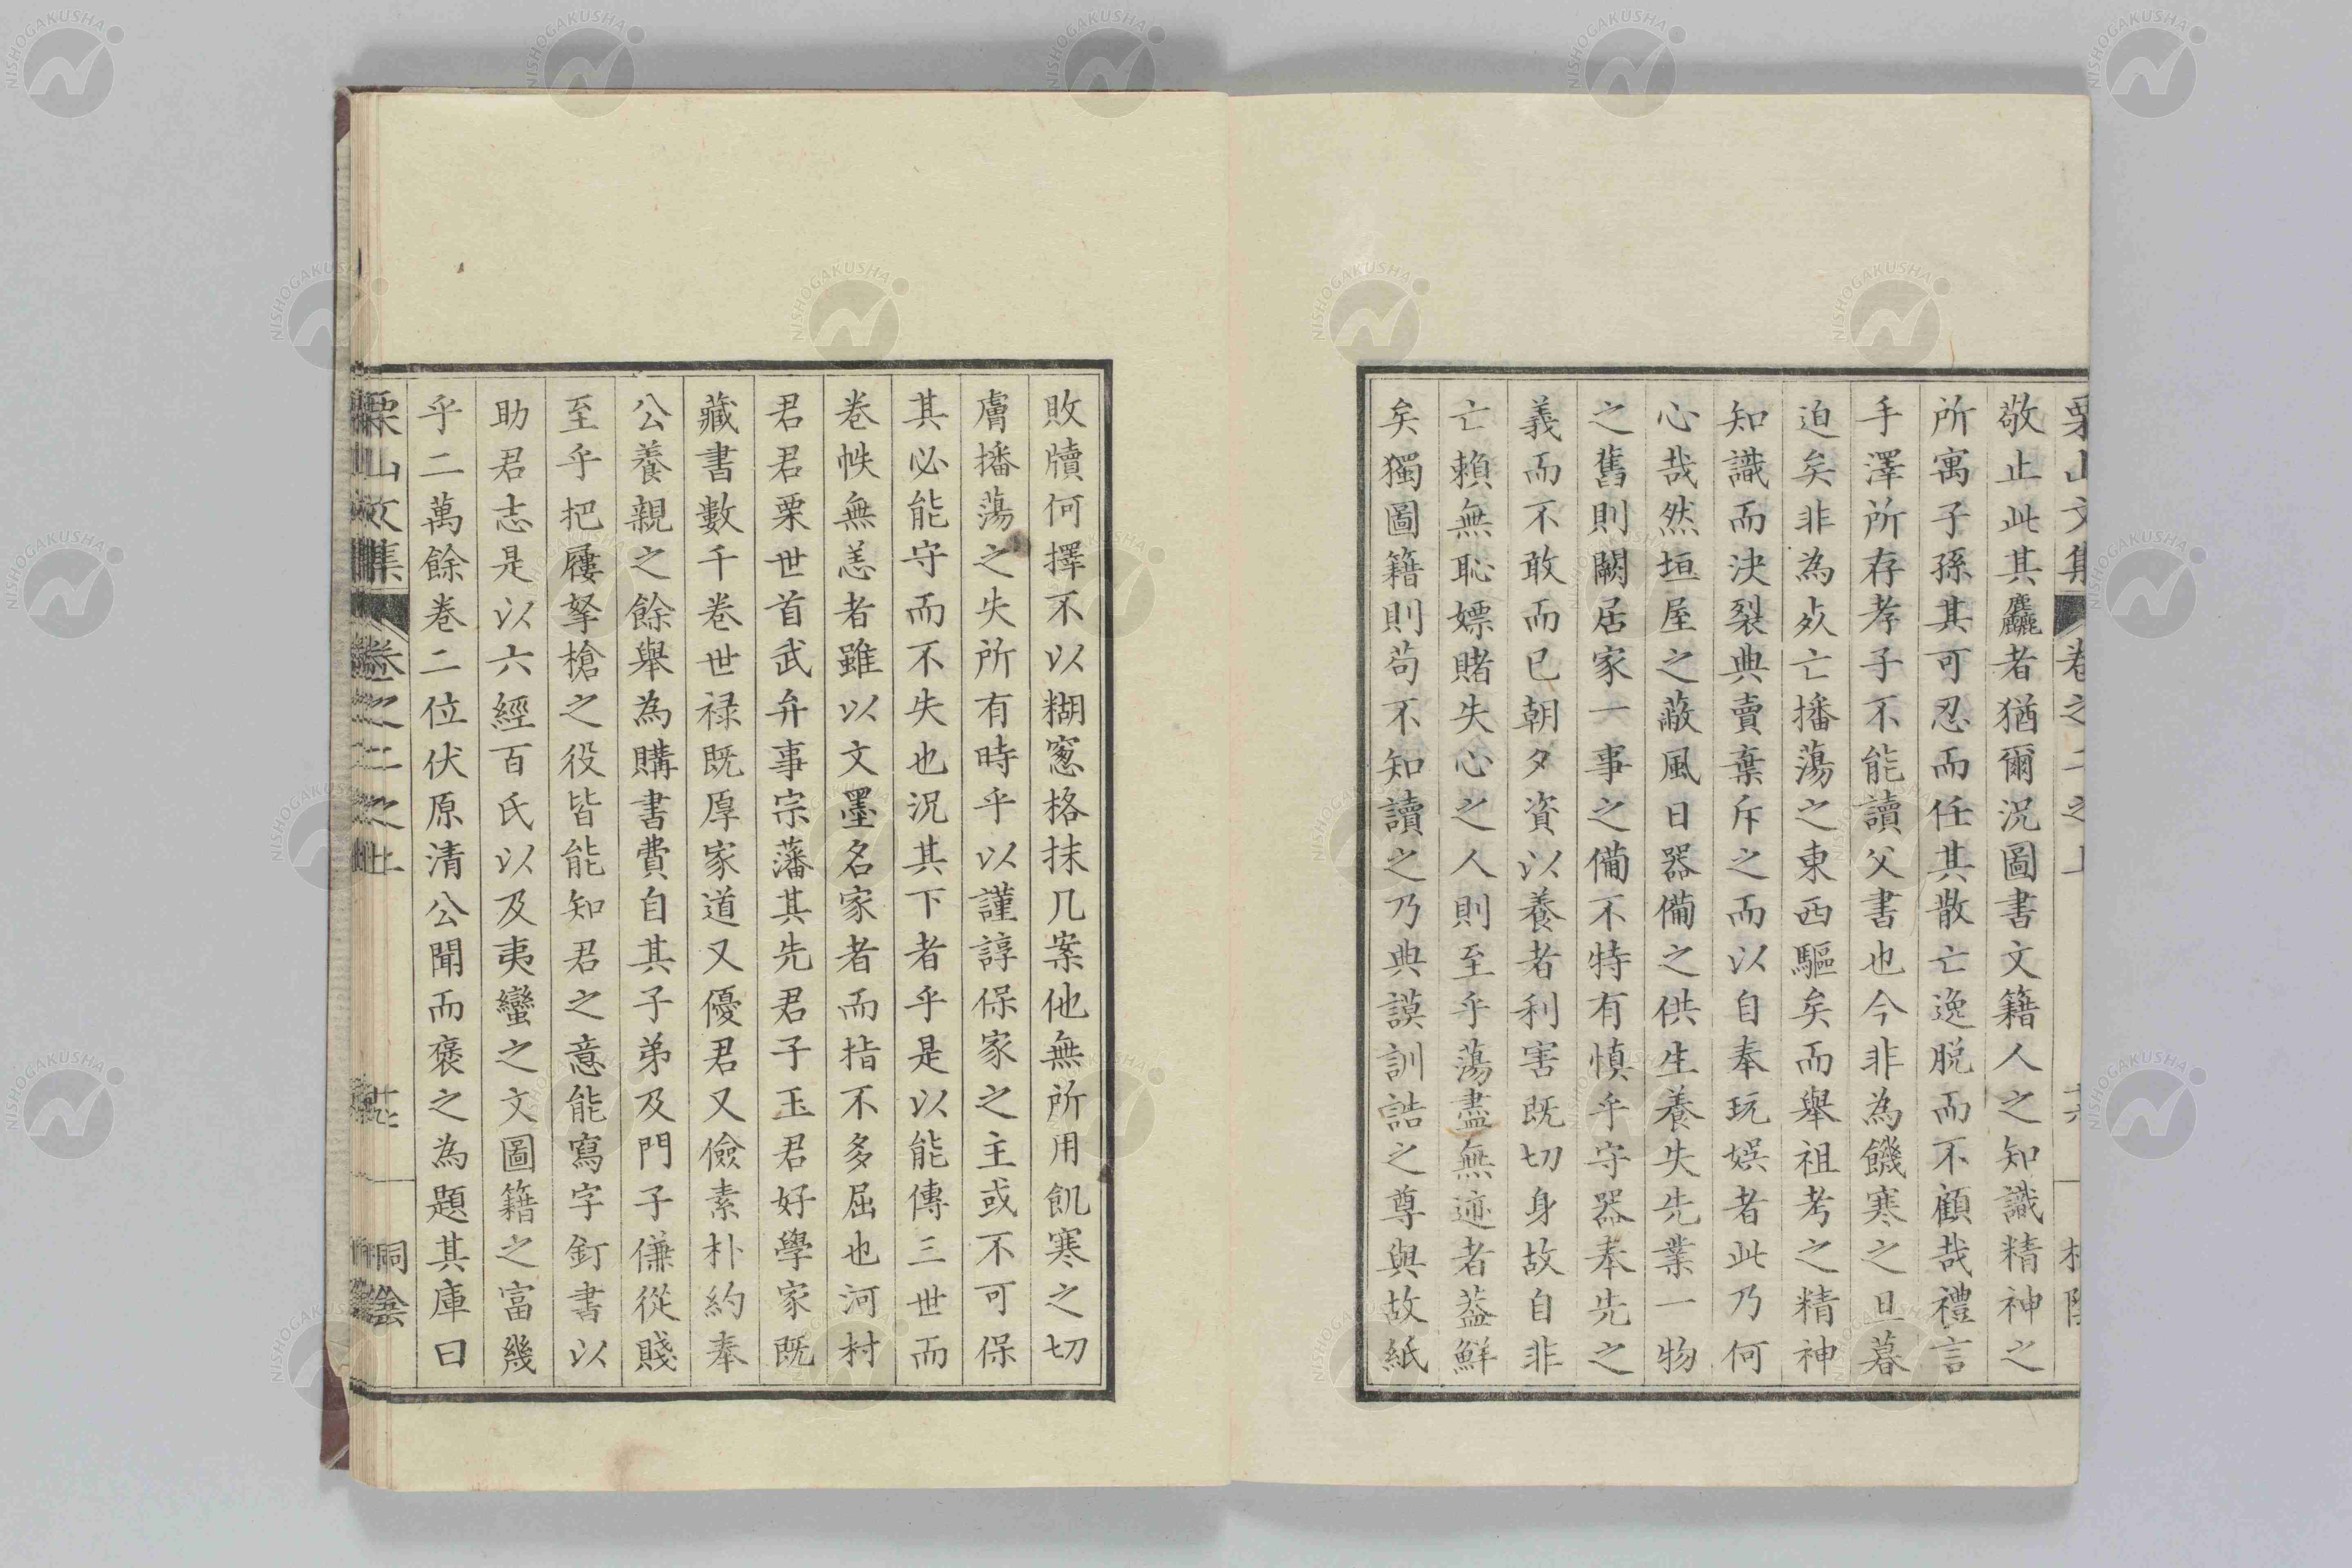 敬止此其麤者猶爾況圖書文籍人之知識精神之
所寓子孫其可忍而任其散亡逸脱而不顧哉禮言
手澤所存孝子不能讀父書也今非為饑寒之旦暮
迫矣非為灾亡播蕩之東西驅矣而舉祖考之精神
知識而決裂典賣棄斥之而以自奉玩娯者此乃何
心哉然垣屋之蔽風日器備之供生養失先業一物
之舊則闕居家一事之備不特有慎乎守器奉先之
義而不敢而已朝夕資以養者利害既切身故自非
亡賴無恥嫖賭失心之人則至乎蕩盡無迹者葢鮮
矣獨圖籍則苟不知讀之乃典謨訓誥之尊與故紙
敗牘何擇不以糊窻格抹几案他無所用飢寒之切
膚播蕩之失所有時乎以謹諄保家之主或不可保
其必能守而不失也況其下者乎是以能傳三世而
巻帙無恙者雖以文墨名家者而指不多屈也河村
君君栗世首武弁事宗藩其先君子玉君好學家既
藏書數千巻世禄既厚家道又優君又儉素朴約奉
公養親之餘舉為購書費自其子弟及門子傔從賤
至乎把屨拏槍之役皆能知君之意能寫字釘書以
助君志是以六經百氏以及夷蠻之文圖籍之富幾
乎二萬餘巻二位伏原清公聞而褒之為題其庫曰
栗山文集 卷之二之上 桐陰